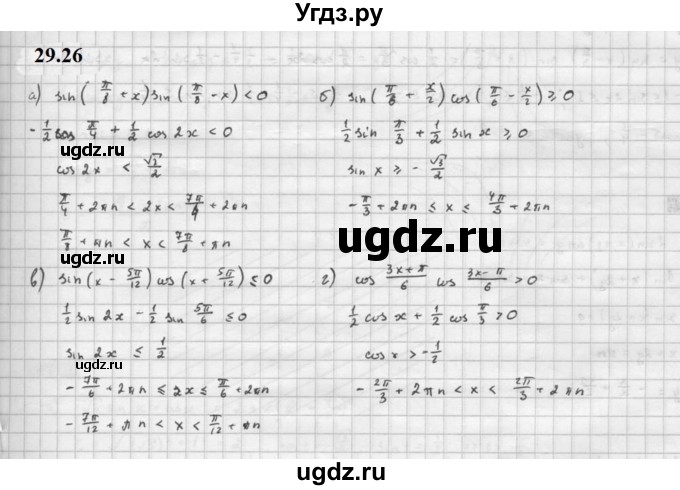 Угдз.ру
29.26
а) sin(π/8 + x) sin(π/8 - x) < 0
- 1/2 cos π/4 + 1/2 cos 2x < 0
cos 2x < √2/2
π/4 + 2πn < 2x < 7π/4 + 2πn
π/8 + πn < x < 7π/8 + πn
б) sin(π/6 + x/2) cos(π/6 - x/2) ≥ 0
1/2 sin π/3 + 1/2 sin x ≥ 0
sin x ≥ - √3/2
- π/3 + 2πn ≤ x ≤ 4π/3 + 2πn
в) sin(x - 5π/12) cos(x + 5π/12) ≤ 0
1/2 sin 2x - 1/2 sin 5π/6 ≤ 0
sin 2x ≤ 1/2
- 7π/6 + 2πn ≤ 2x ≤ π/6 + 2πn
- 7π/12 + πn < x < π/12 + πn
г) cos (3x+π)/6 cos (3x-π)/6 > 0
1/2 cos x + 1/2 cos π/3 > 0
cos x > - 1/2
- 2π/3 + 2πn < x < 2π/3 + 2πn
ugdz.ru
ugdz.ru
ugdz.ru
ugdz.ru
ugdz.ru
ugdz.ru
ugdz.ru
ugdz.ru